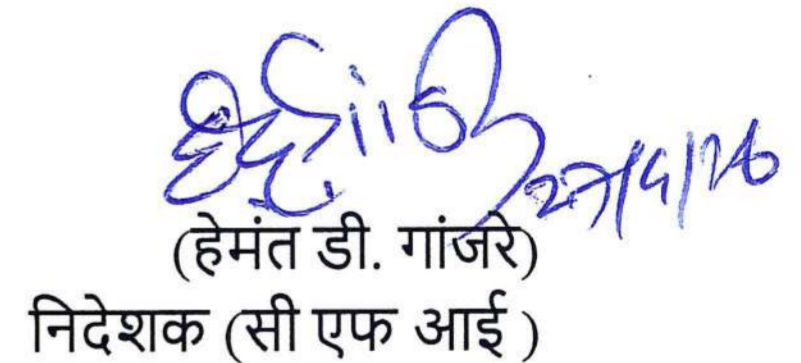 27/4/26
(हेमंत डी. गांजरे)
निदेशक (सी एफ आई )